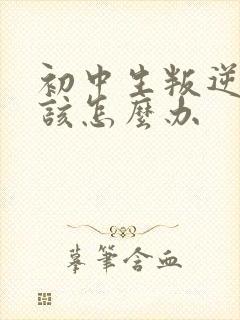 初中生叛逆
該怎麼办
摹筆含血